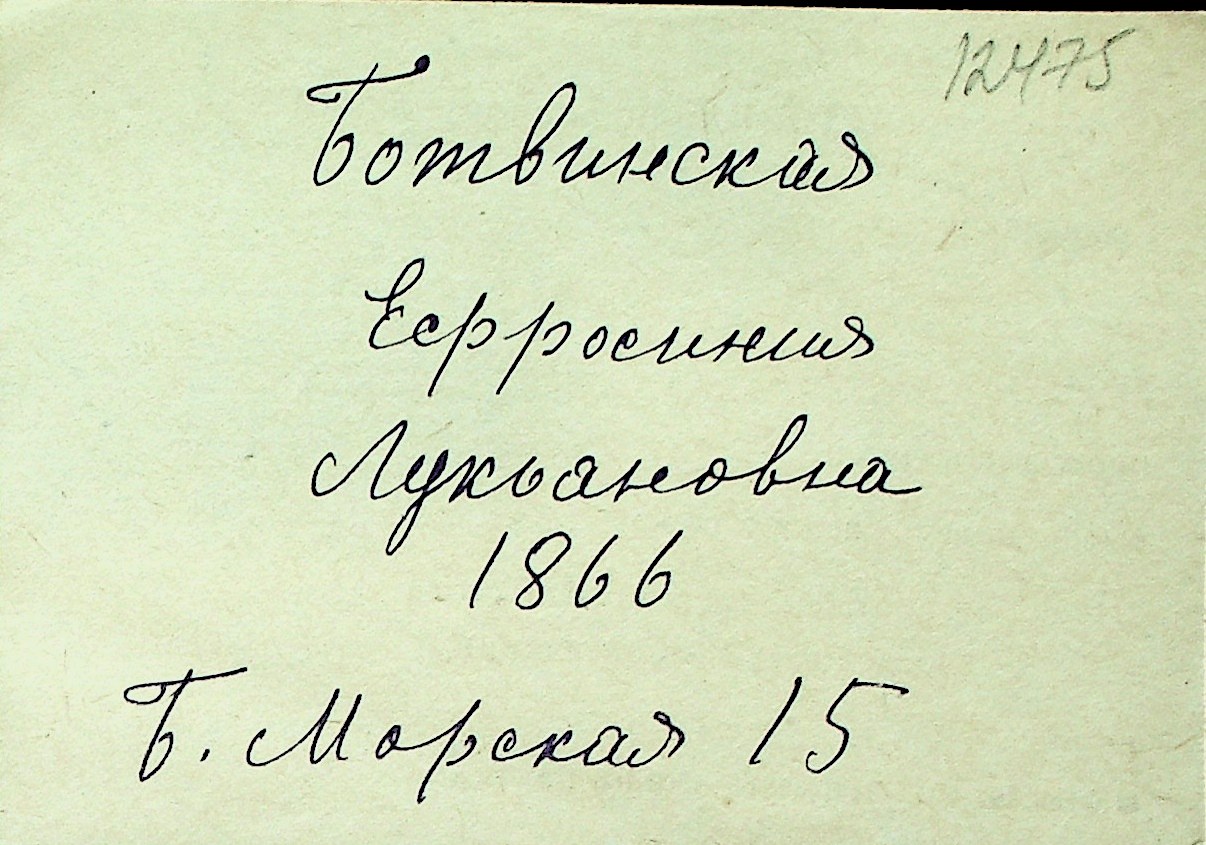 12475
Ботвинская
Ефросиния
Лукьяновна
1866
Б. Морская 15